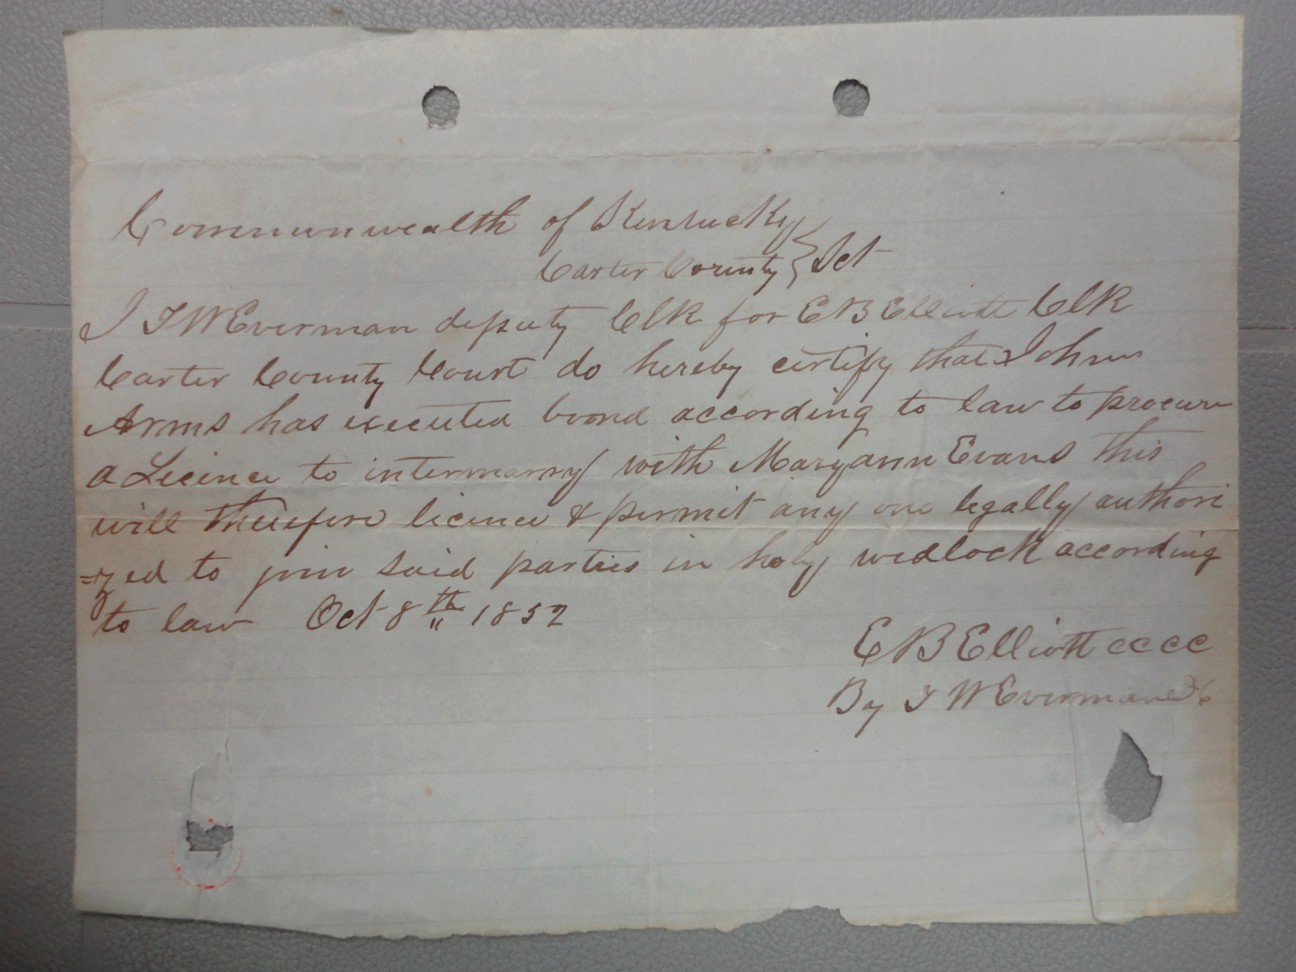 Commonwealth of Kentucky
Carter County } Sct
I T W Everman deputy Clk for E B Elliott Clk
Carter County Court do hereby certify that John
Arms has executed boond according to law to procure
a Licince to intermarry with Maryann Evans this
will therefore licince & permit any one legally authori
=zed to join said parties in holy wedlock according
to law Oct 8th 1852
E B Elliott cccc
By T W Everman dc